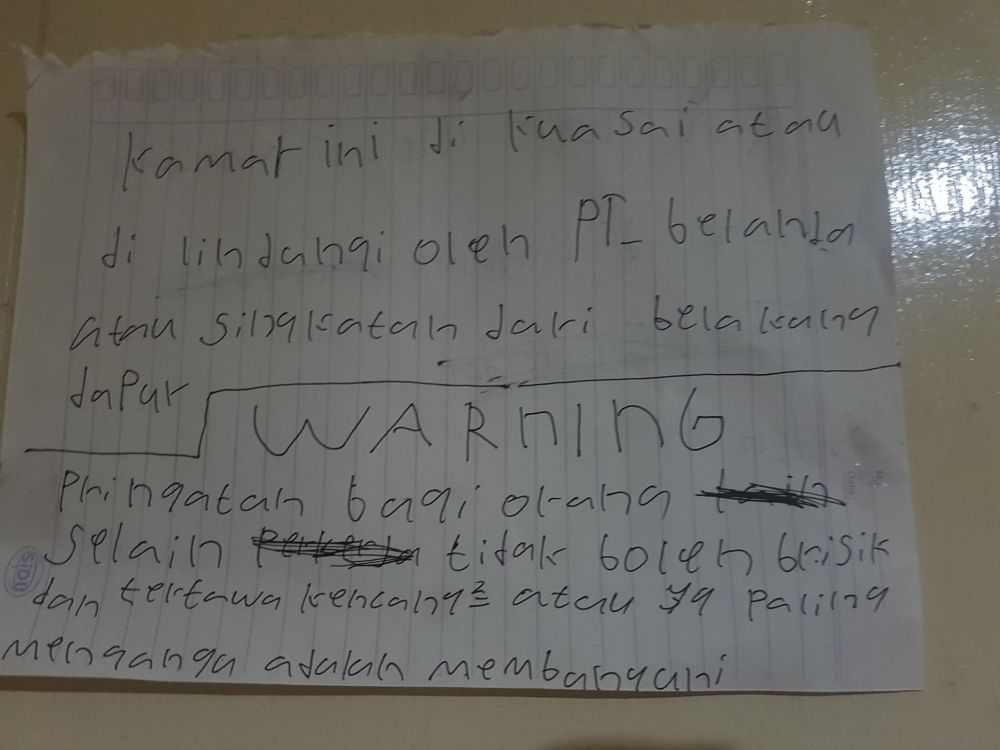 Kamar ini di kuasai atau
di lindangi oleh PT_ belanda
atau singkatan dari belakang
dapur
WARNING
Pringatan bagi orang
selain tidak boleh brisik
dan tertawa kencang² atau yg paling
menganga adalah membangyani
SiDU